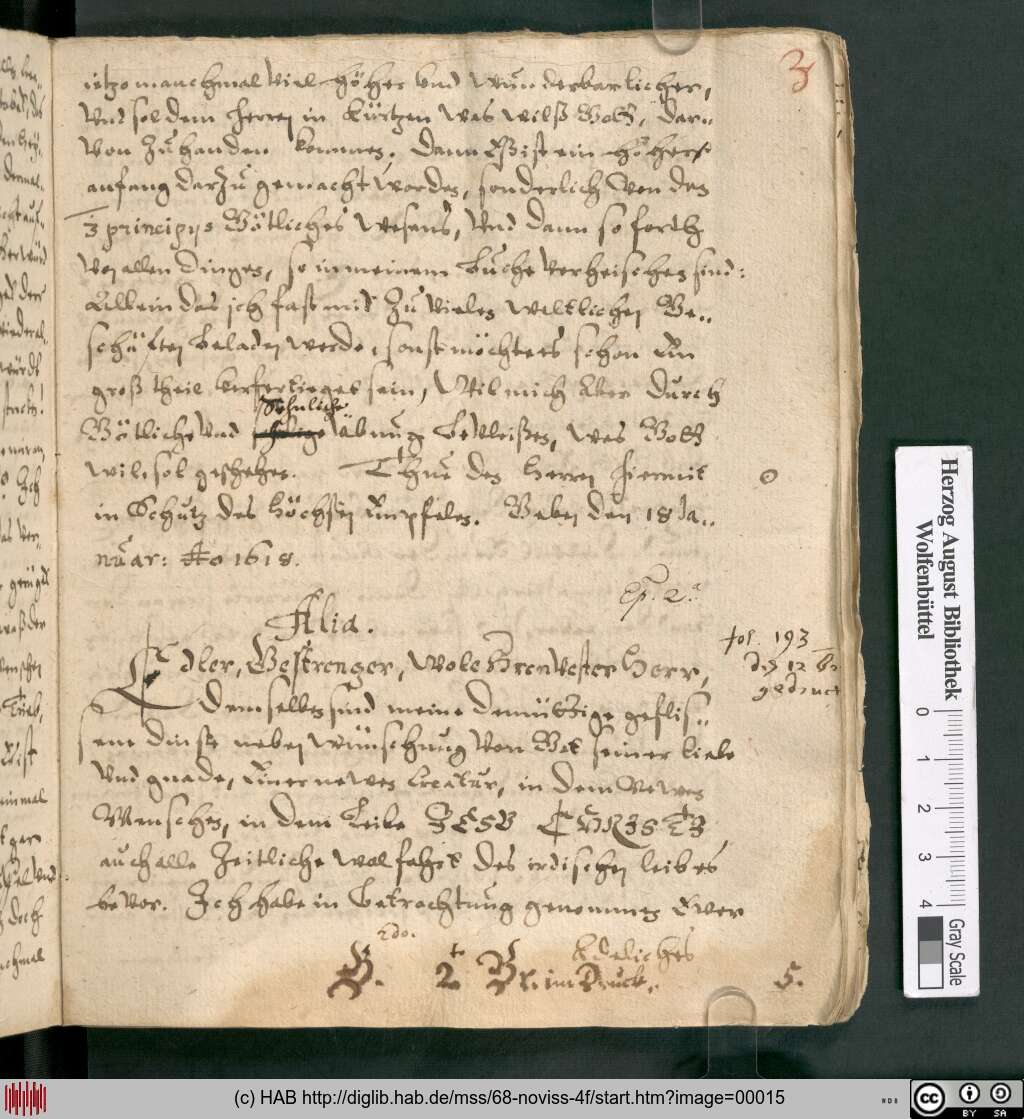 3
itzo manchmal viel höher vnd wunderbarlicher,
Vnd sol dem Herren in kürtzen was wilß Gott, dar„
von zu handen kommen. Dann Eß ist ein höherer
anfang darzu gemacht worden, sonderlich von den
3 principys Götliches wesens, vnd dann so forth
von allen dingen, so in meinem Buche verheischen sind:
Allein das jch fast mit zu vielen weltlichen Ge„
schäften beladen werde, sonst möchte es schon Ein
groß theil verfertiget sein, Wil mich aber durch
Götliche vnd Sehnliche übnug befleißen, was Gott
wil, sol geschehen. Thue den Herren hiermit
in Schutz des höchsten Empfelen. Geben den 18 Ja„
nuar: Ao 1618.
Ep. 2.a
Alia.
Edler, Gestrenger, Wole hrenvester Herr,
fol. 193
die 12 Br
gedruct
Demselben sind meine demüttige geflis„
sene dinste neben wünschung von Got seiner liebe
vnd gnade, Einer newen Creatur, in dem Newen
Menschen, in dem Leibe JESV CHRISTI
auch alle zeitliche wolfahrt des irdischen leibes
bevor. Jch habe in betrachtung genommen Ewer
Adeliches
Br. im Druck.
5.
Herzog August Bibliothek
Wolfenbüttel
0 1 2 3 4
Gray Scale
(c) HAB http://diglib.hab.de/mss/68-noviss-4f/start.htm?image=00015
cc BY SA